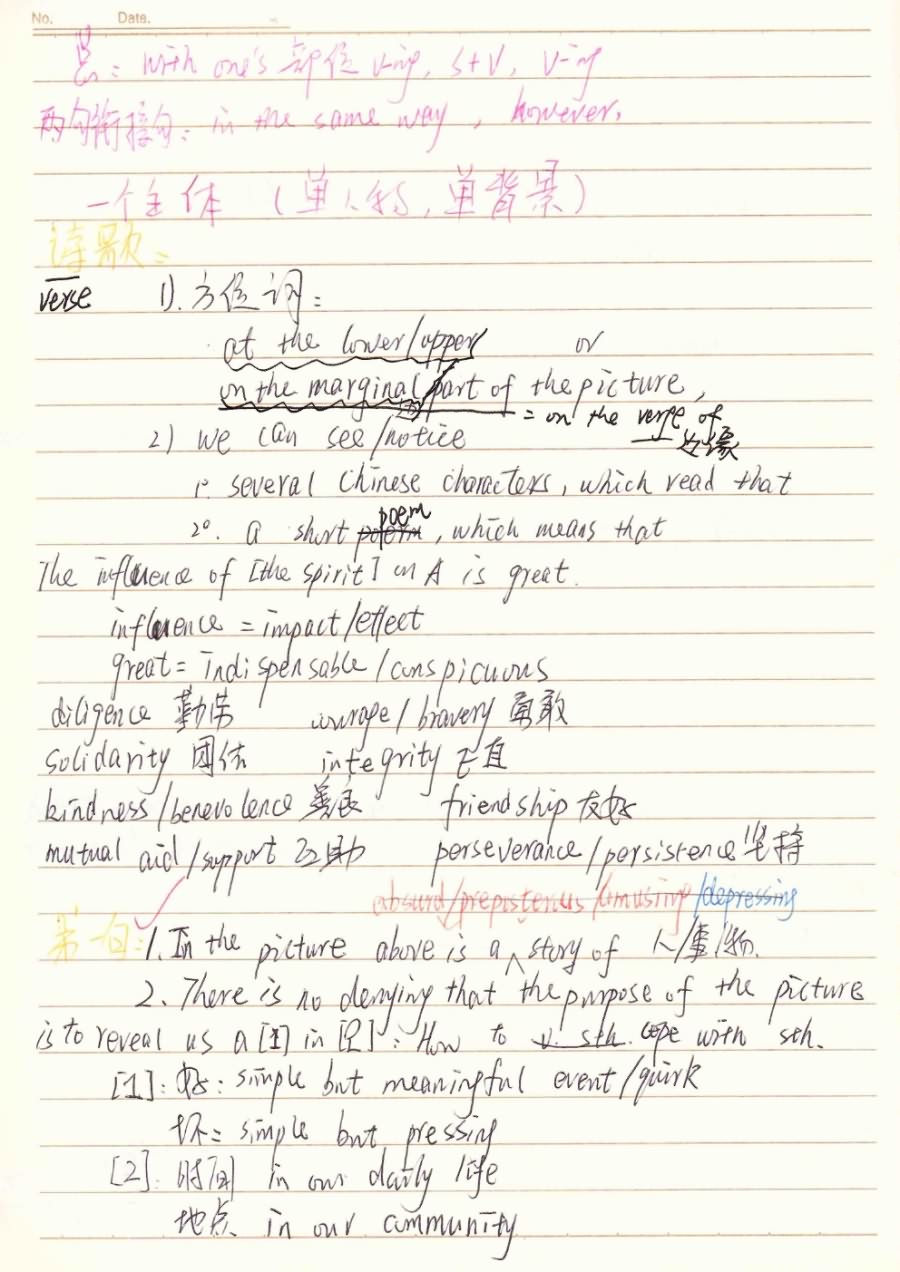 No. Date.
: with one's 部位 v-ing, s+v, v-ing
两句衔接句: in the same way, however,
一个主体 (单人物, 单背景)
诗歌:
verse 1). 方位词:
at the lower/upper or
on the marginal part of the picture,
= on the verge of
边缘
2) we can see/notice
1°. several Chinese characters, which read that
poem
2°. a short , which means that
The influence of [the spirit] on A is great.
influence = impact/effect
great = indispensable/conspicuous
diligence 勤劳 courage/bravery 勇敢
solidarity 团结 integrity 正直
kindness/benevolence 善良 friendship 友好
mutual aid/support 互助 perseverance/persistence 坚持
absurd/preposterous/amusing/depressing
第一句: 1. In the picture above is a ∧ story of 人/事/物.
2. There is no denying that the purpose of the picture
is to reveal us a [1] in [2]: How to v. sth. cope with sth.
[1]: 好: simple but meaningful event/quirk
坏: simple but pressing
[2]: 时间 in our daily life
地点 in our community